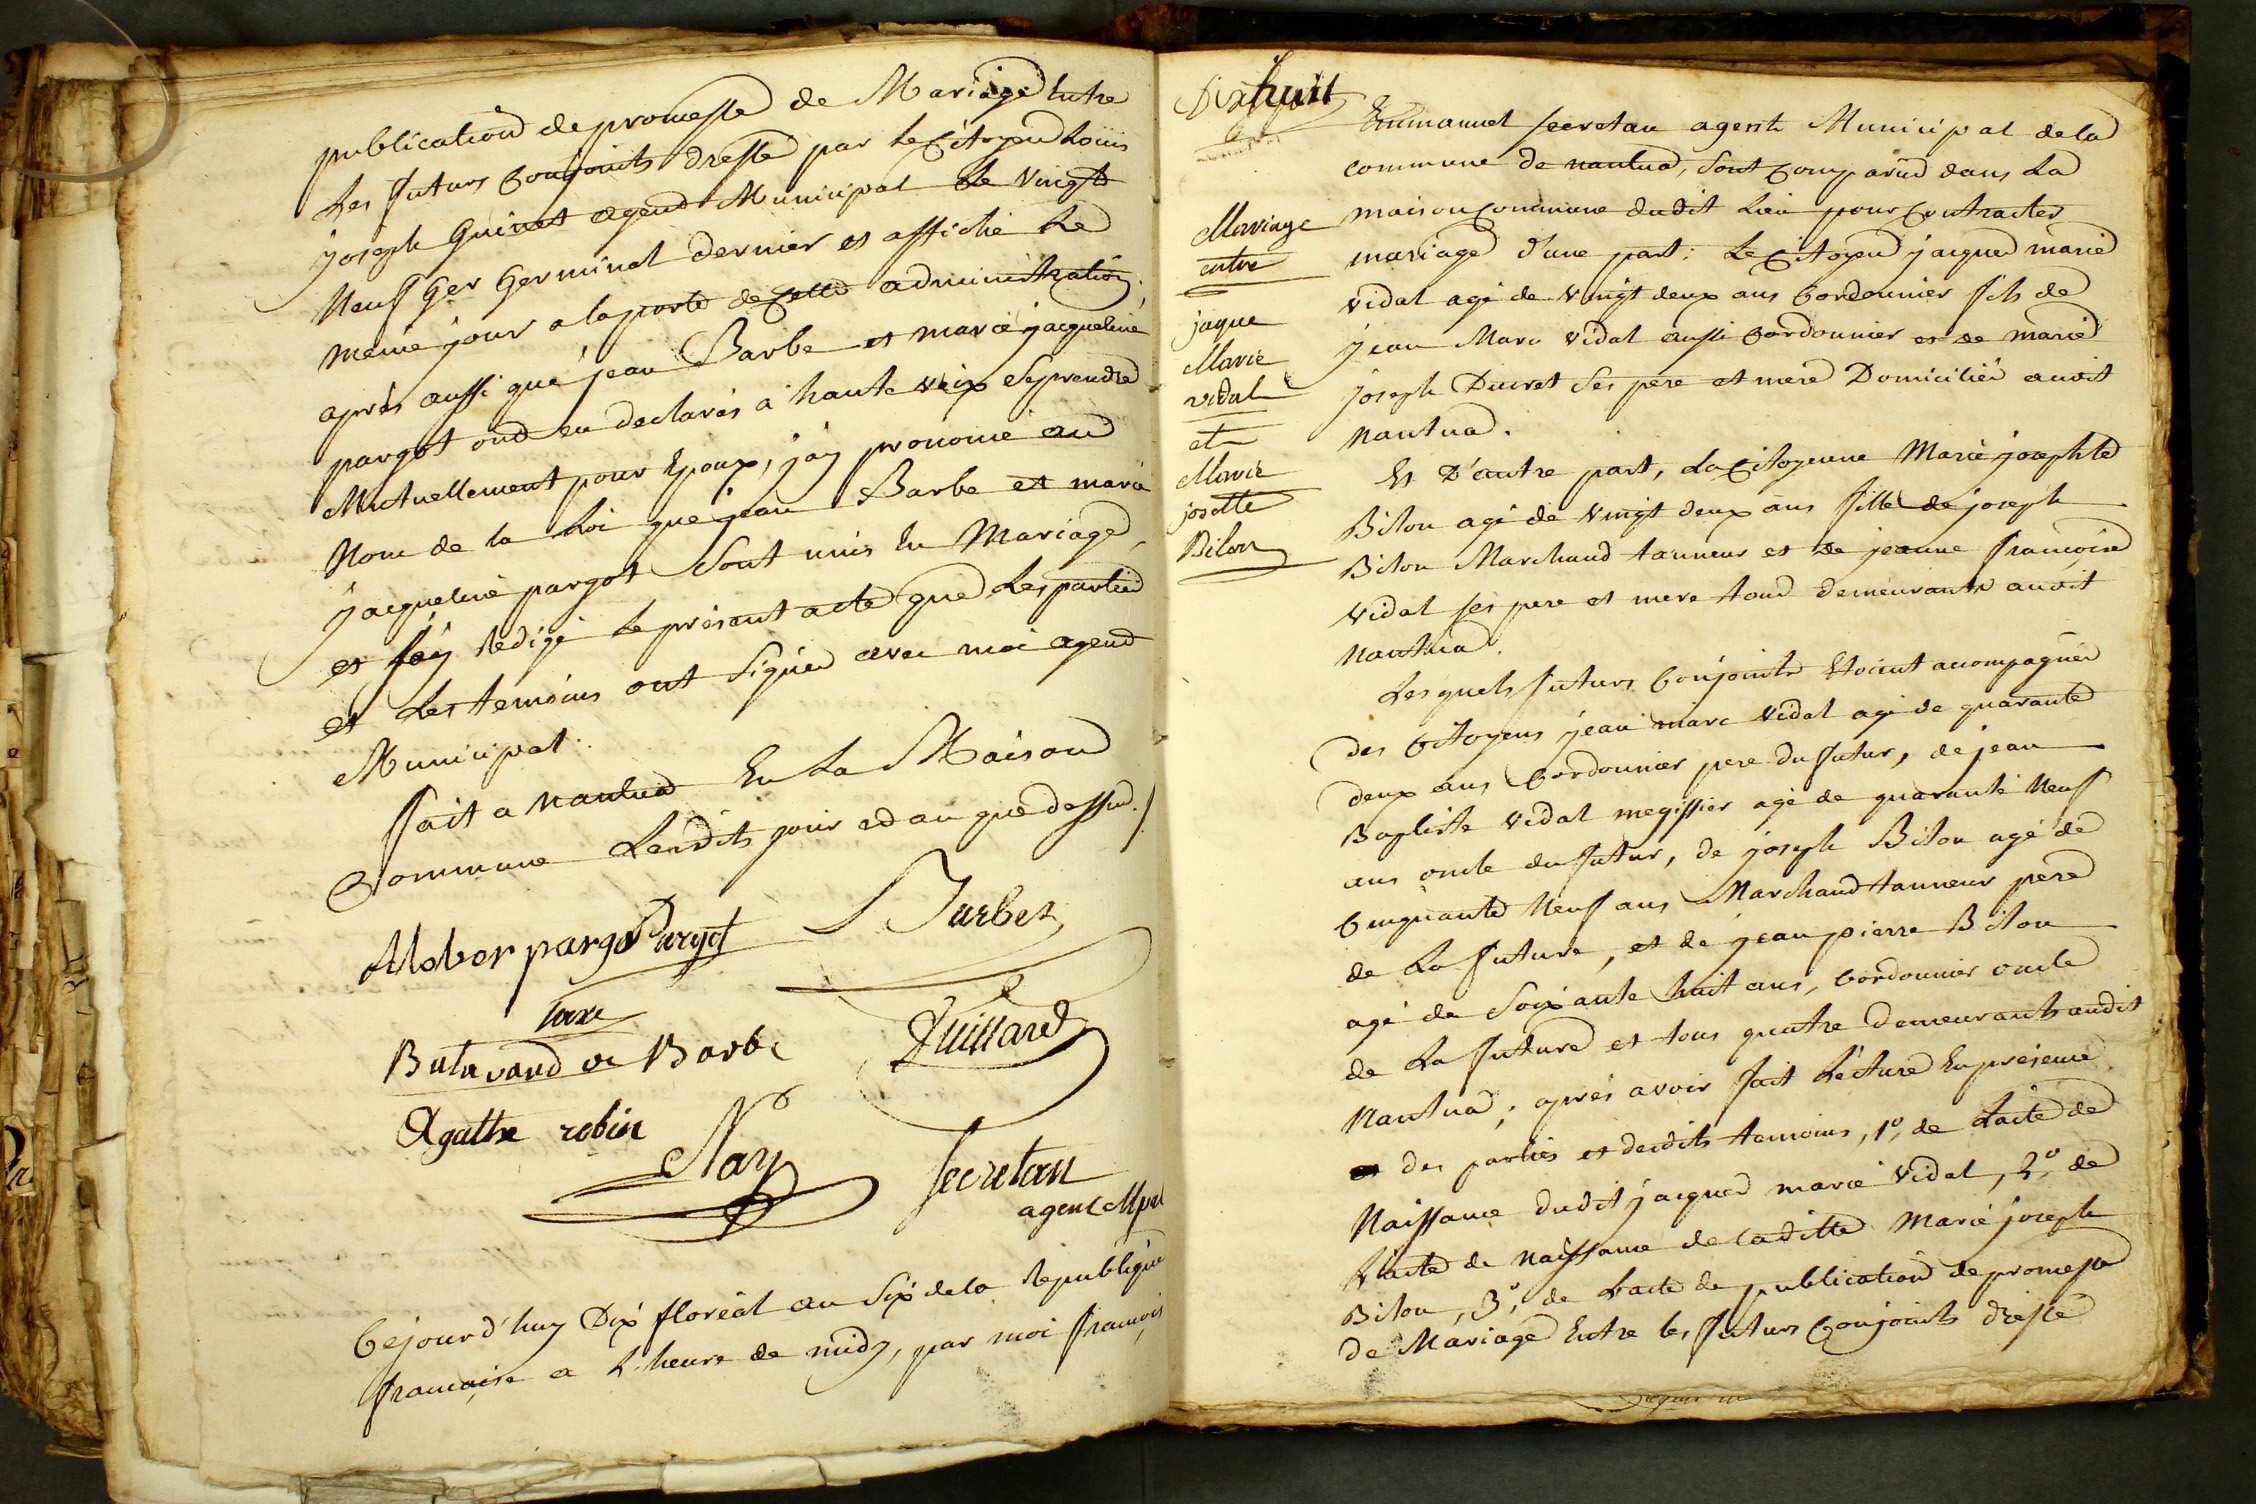 publication de promesse de Mariage Entre
Les futurs Conjoints dressé par Le Citoyen Louis
joseph Guinet agend Municipal Le vingt
Neuf Ger Germinal dernier et affiché Le
même jour a la porte de Cette administration,
après aussi que jean Barbe et marie jacqueline
pargot ond eu declarés à haute voix Se prendre
Mutuellement pour Epoux, j'ay prononcé au
Nom de la Loi que jean Barbe et marie
jacqueline pargot Sont unis En Mariage,
et j'ay Redigé Le présent acte que Les parties
et Les temoins ont Signés avec moi agend
Municipal.
fait a Nantua En La Maison
Commune Lesdits jour et an que dessus./
pargo Pargot Barbe
Taxe
Butavand Barbe Juillard
Agathe robin
Nay Secretan
agent Mpal
Cejourd'huy Dix floréal an Six de la Republique
francaise a L'heure de midy, par moi francois
Dix huit
Emmanuel Secretan agent Municipal de la
commune de nantua, Sont Comparûs dans La
maison Commune dudit Lieu pour Contracter
mariage d'une part: Le Citoyen jacques marie
vidal agé de vingt deux ans Cordonnier fils de
jean Marc vidal aussi Cordonnier et de marie
joseph Ducret Ses pere et mere Domiciliés audit
Nantua.
Mariage
entre
jaque
Marie
vidal
et
Marie
josette
Bilon
Et D'autre part, La Citoyenne Marie josephte
Bilon agé de vingt deux ans fille de joseph
Bilon Marchand tanneur et de jeanne francoise
Vidal Ses pere et mere tous demeurants audit
Nantua.
Lesquels futurs Conjoints Etoient accompagnés
des Citoyens jean marc Vidal agé de quarante
deux ans Cordonnier pere du futur, de jean
Baptiste Vidal megissier agé de quarante Neuf
ans oncle du futur, de joseph Bilon agé de
Cinquante Neuf ans Marchand tanneur pere
de La future, et de jean pierre Bilon
agé de Soixante huit ans, Cordonnier oncle
de La future et tous quatre demeurants audit
Nantua; après avoir fait Lecture En présence
des parties et desdits temoins, 1°, de L'acte de
Naissance dudit jacques marie Vidal, 2°, de
L'acte de naissance de Laditte Marie joseph
Bilon, 3°, de L'acte de publication de promesse
de Mariage Entre les futurs Conjoints dressé